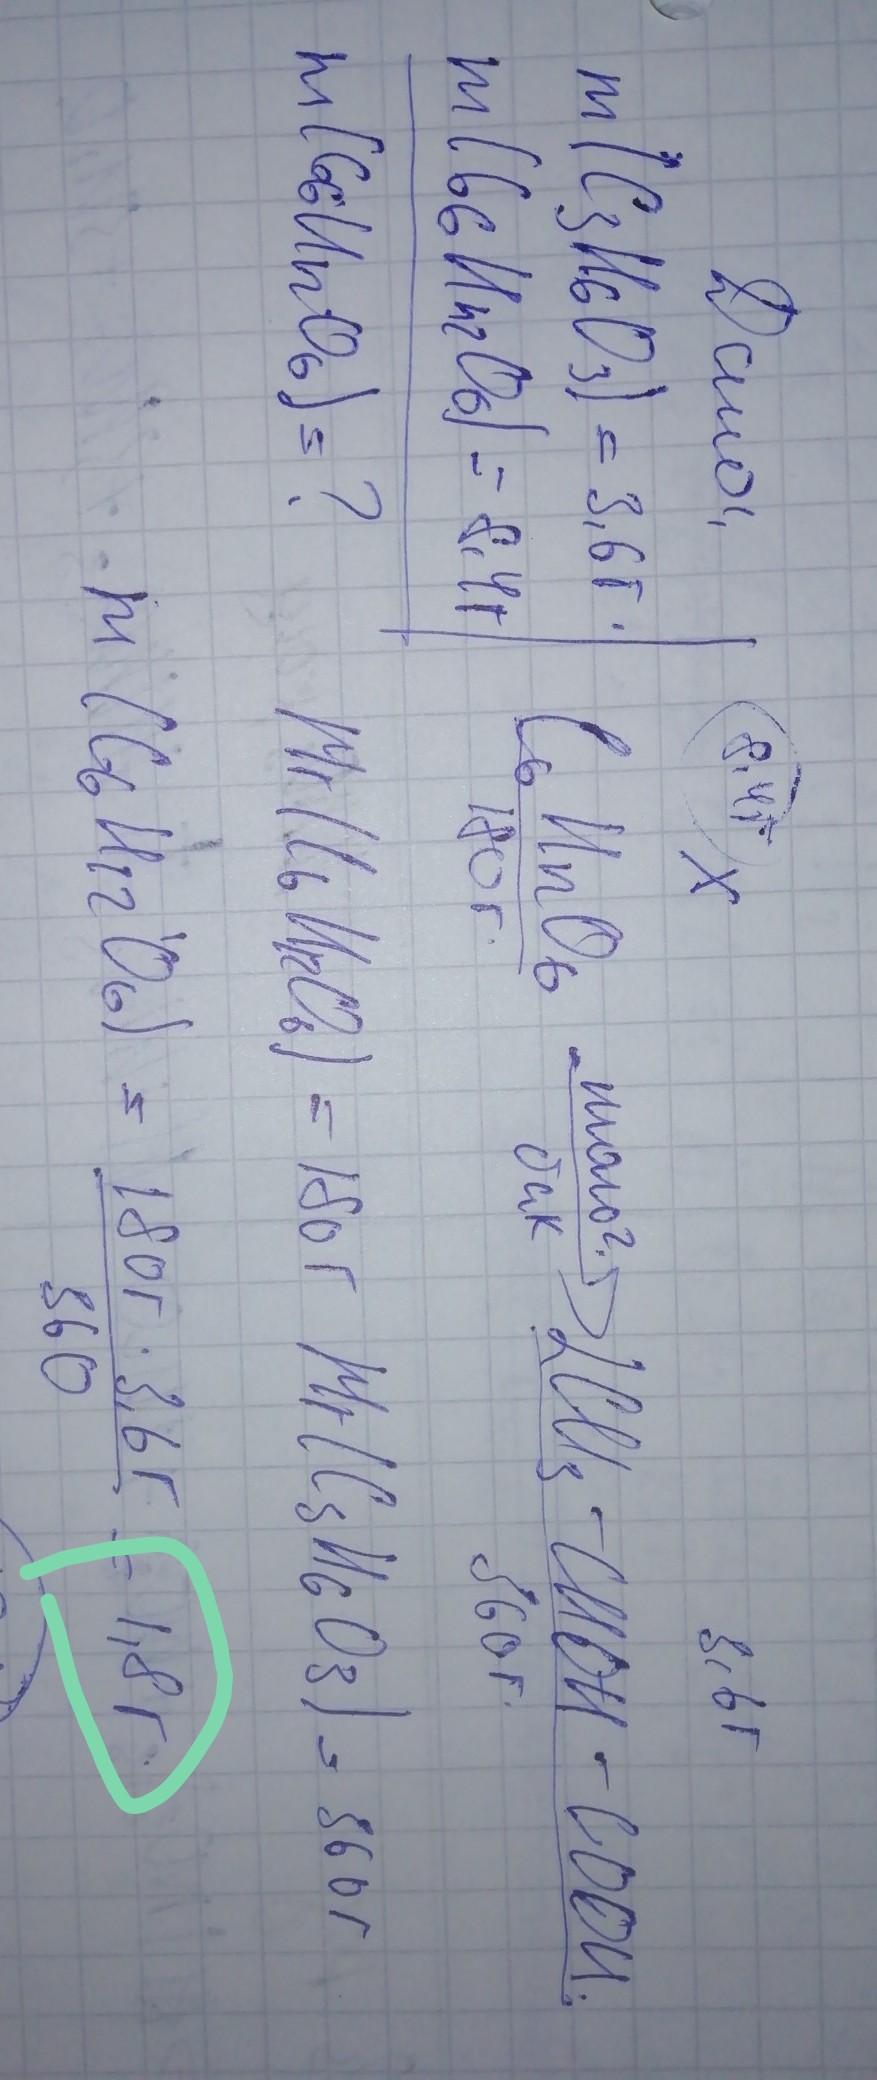 Дано:
m(C₃H₆O₃) = 3,6г.
m(C₆H₁₂O₆) = 8,4г
m(C₆H₁₂O₆) = ?
8,4г X 3,6г
C₆H₁₂O₆ молоч. бак → 2CH₃-CHOH-COOH.
180г. 360г.
Mr(C₆H₁₂O₆) = 180г Mr(C₃H₆O₃) = 360г
m(C₆H₁₂O₆) = 180г · 3,6г / 360 = 1,8г.